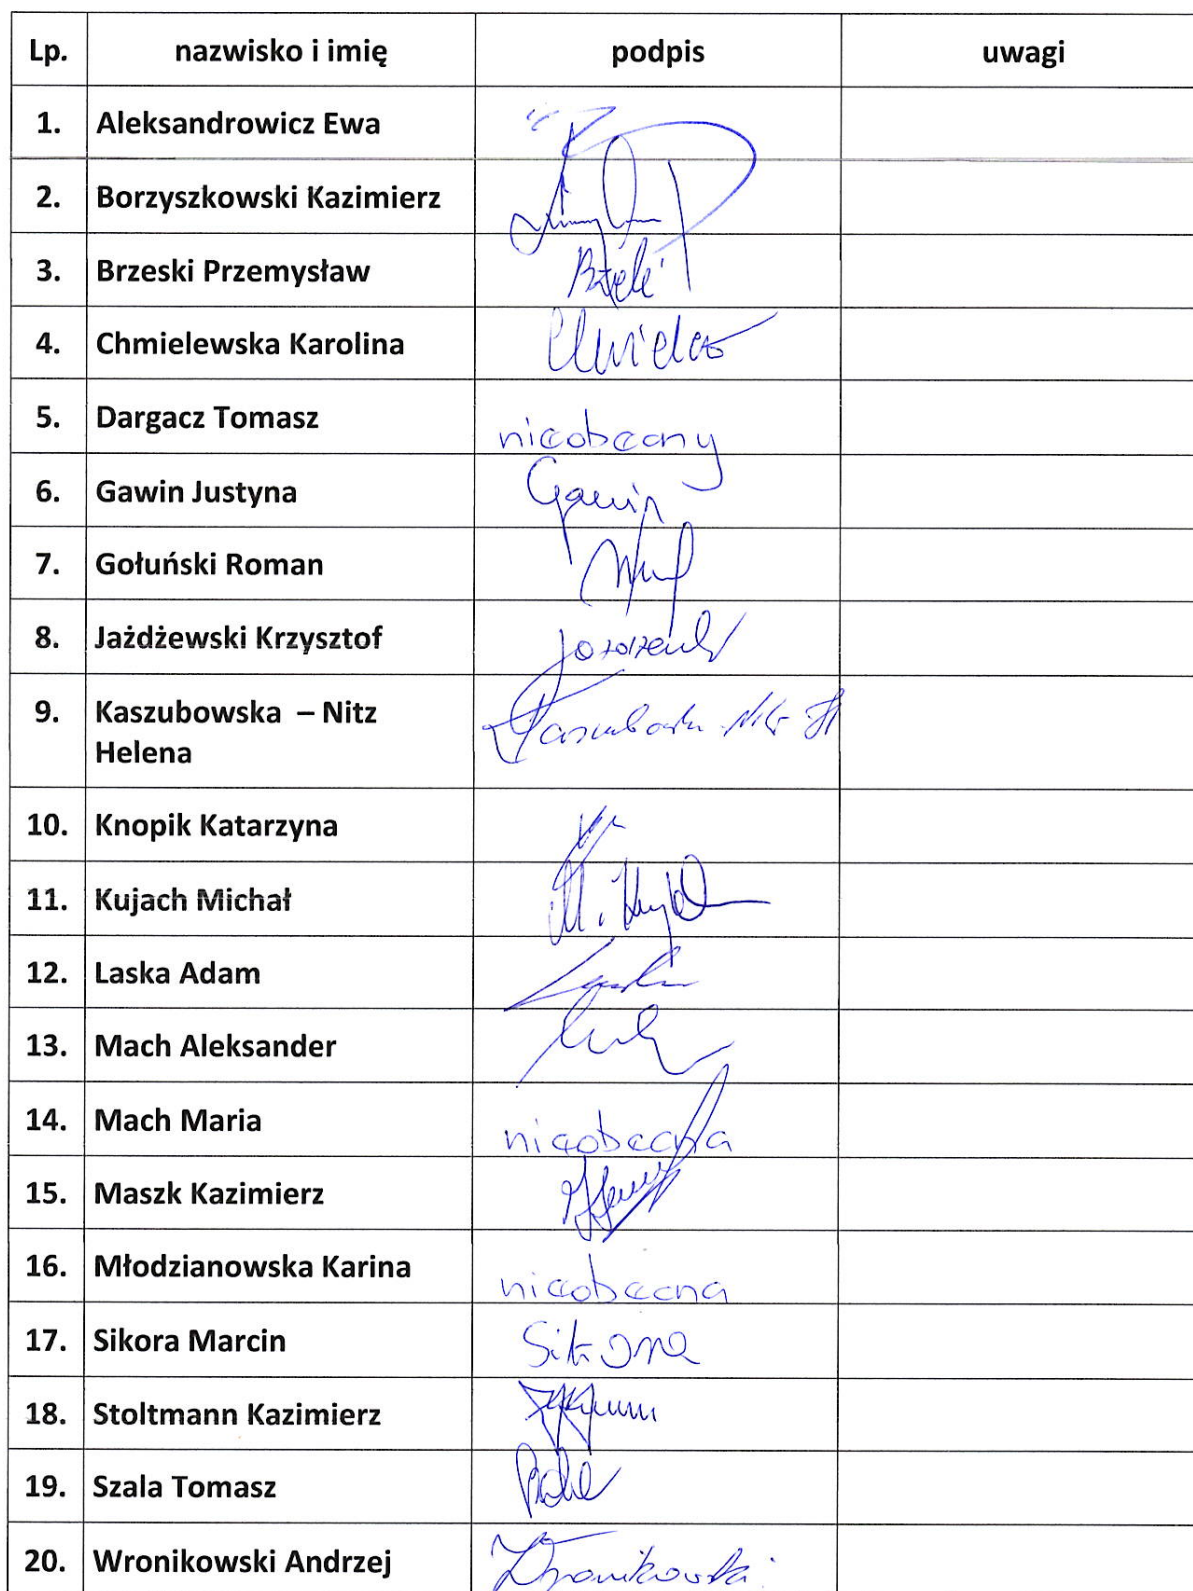 Lp. nazwisko i imię podpis uwagi
1. Aleksandrowicz Ewa
2. Borzyszkowski Kazimierz
3. Brzeski Przemysław
4. Chmielewska Karolina
5. Dargacz Tomasz nieobecny
6. Gawin Justyna Gawin
7. Gołuński Roman
8. Jażdżewski Krzysztof
9. Kaszubowska – Nitz
Helena
10. Knopik Katarzyna
11. Kujach Michał
12. Laska Adam
13. Mach Aleksander
14. Mach Maria nieobecna
15. Maszk Kazimierz
16. Młodzianowska Karina nieobecna
17. Sikora Marcin Sikora
18. Stoltmann Kazimierz
19. Szala Tomasz
20. Wronikowski Andrzej